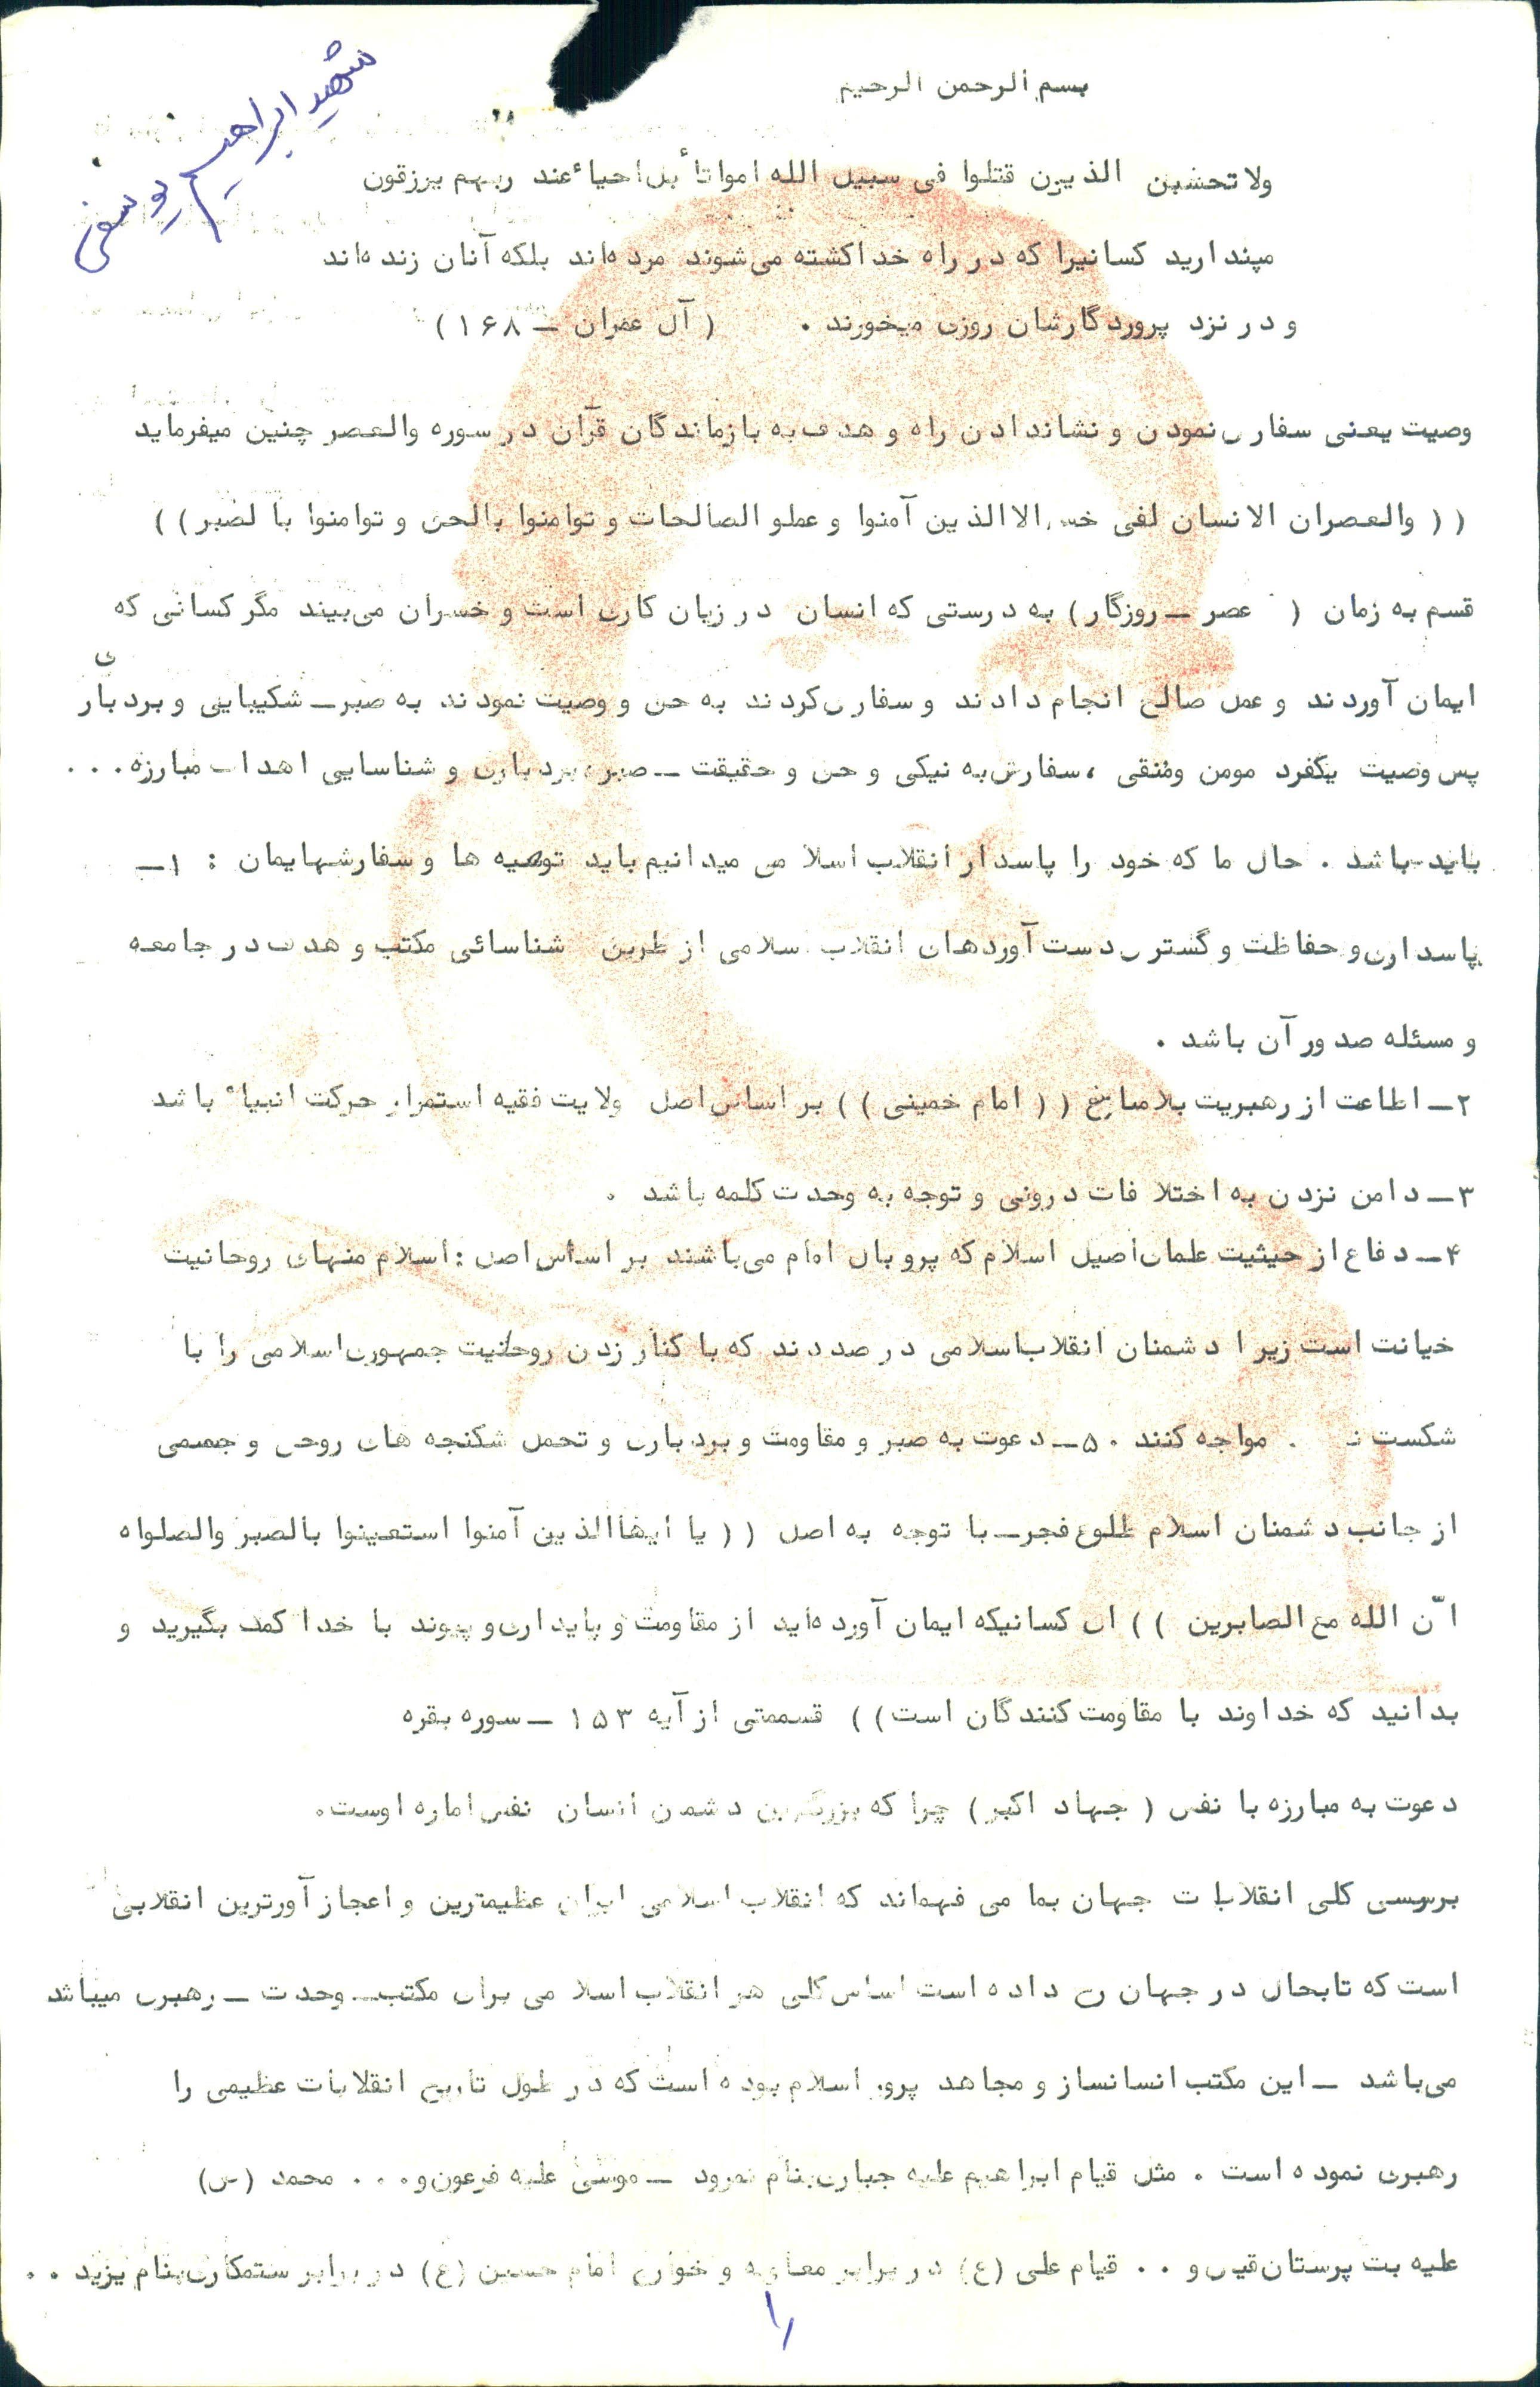 شهید ابراهیم یوسفی
بسم الرحمن الرحیم
ولاتحشبن الذین قتلوا فی سبیل الله امواتا بل احیاء عند ربهم یرزقون
مپندارید کسانیرا که در راه خدا کشته می‌شوند مرده‌اند بلکه آنان زنده‌اند
و در نزد پروردگارشان روزی میخورند . ( آل عمران ـ ۱۶۸ )
وصیت یعنی سفارش نمودن و نشاندادن راه و هدف به بازماندگان قرآن در سوره والعصر چنین میفرماید
(( والعصران الانسان لفی خسر الا الذین آمنوا و عملو الصالحات و توامنوا بالحق و توامنوا با لصبر ))
قسم به زمان ( عصر ـ روزگار ) به درستی که انسان در زیان کاری است و خسران می‌بیند مگر کسانی که
ایمان آوردند و عمل صالح انجام دادند و سفارش کردند به حق و وصیت نمودند به صبر ـ شکیبایی و بردباری
پس وصیت یکفرد مومن ومتقی ، سفارش به نیکی و حق و حقیقت ـ صبر ، بردباری و شناسایی اهداف مبارزه ...
باید باشد . حال ما که خود را پاسدار انقلاب اسلا می میدانیم باید توصیه ها و سفارشهایمان : ۱ ـ
پاسداری و حفاظت و گسترش دست آوردهای انقلاب اسلامی از طریق شناسائی مکتب و هدف در جامعه
و مسئله صدور آن باشد .
۲ ـ اطاعت از رهبریت بلامنازع (( امام خمینی )) بر اساس اصل ولایت فقیه استمرار حرکت انبیاء باشد
۳ ـ دامن نزدن به اختلا فات درونی و توجه به وحدت کلمه باشد .
۴ ـ دفاع از حیثیت علمای اصیل اسلام که پروبال امام می‌باشند بر اساس اصل : اسلام منهای روحانیت
خیانت است زیرا دشمنان انقلاب اسلامی در صددند که با کنار زدن روحانیت جمهوری اسلامی را با
شکست مواجه کنند . ۵ ـ دعوت به صبر و مقاومت و بردباری و تحمل شکنجه های روحی و جسمی
از جانب دشمنان اسلام طلوع فجر ـ با توجه به اصل (( یا ایها الذین آمنوا استعینوا بالصبر والصلواه
انّ الله مع الصابرین )) ای کسانیکه ایمان آورده‌اید از مقاومت و پایداری و پیوند با خدا کمک بگیرید و
بدانید که خداوند با مقاومت کنندگان است )) قسممتی از آیه ۱۵۳ ـ سوره بقره
دعوت به مبارزه با نفس ( جهاد اکبر ) چرا که بزرگترین دشمن انسان نفس اماره اوست .
بررسی کلی انقلابات جهان بما می فهماند که انقلاب اسلامی ایران عظیمترین و اعجاز آورترین انقلابی
است که تابحال در جهان رخ داده است اساس کلی هر انقلاب اسلا می برای مکتب ـ وحدت ـ رهبری میباشد
می‌باشد ـ این مکتب انسانساز و مجاهد پرور اسلام بوده است که در طول تاریخ انقلابات عظیمی را
رهبری نموده است . مثل قیام ابراهیم علیه جباری بنام نمرود ـ موسی علیه فرعون و ... محمد (ص)
علیه بت پرستان و .. قیام علی (ع) در برابر معاویه و خوارج امام حسین (ع) در برابر ستمکاری بنام یزید ..
۱